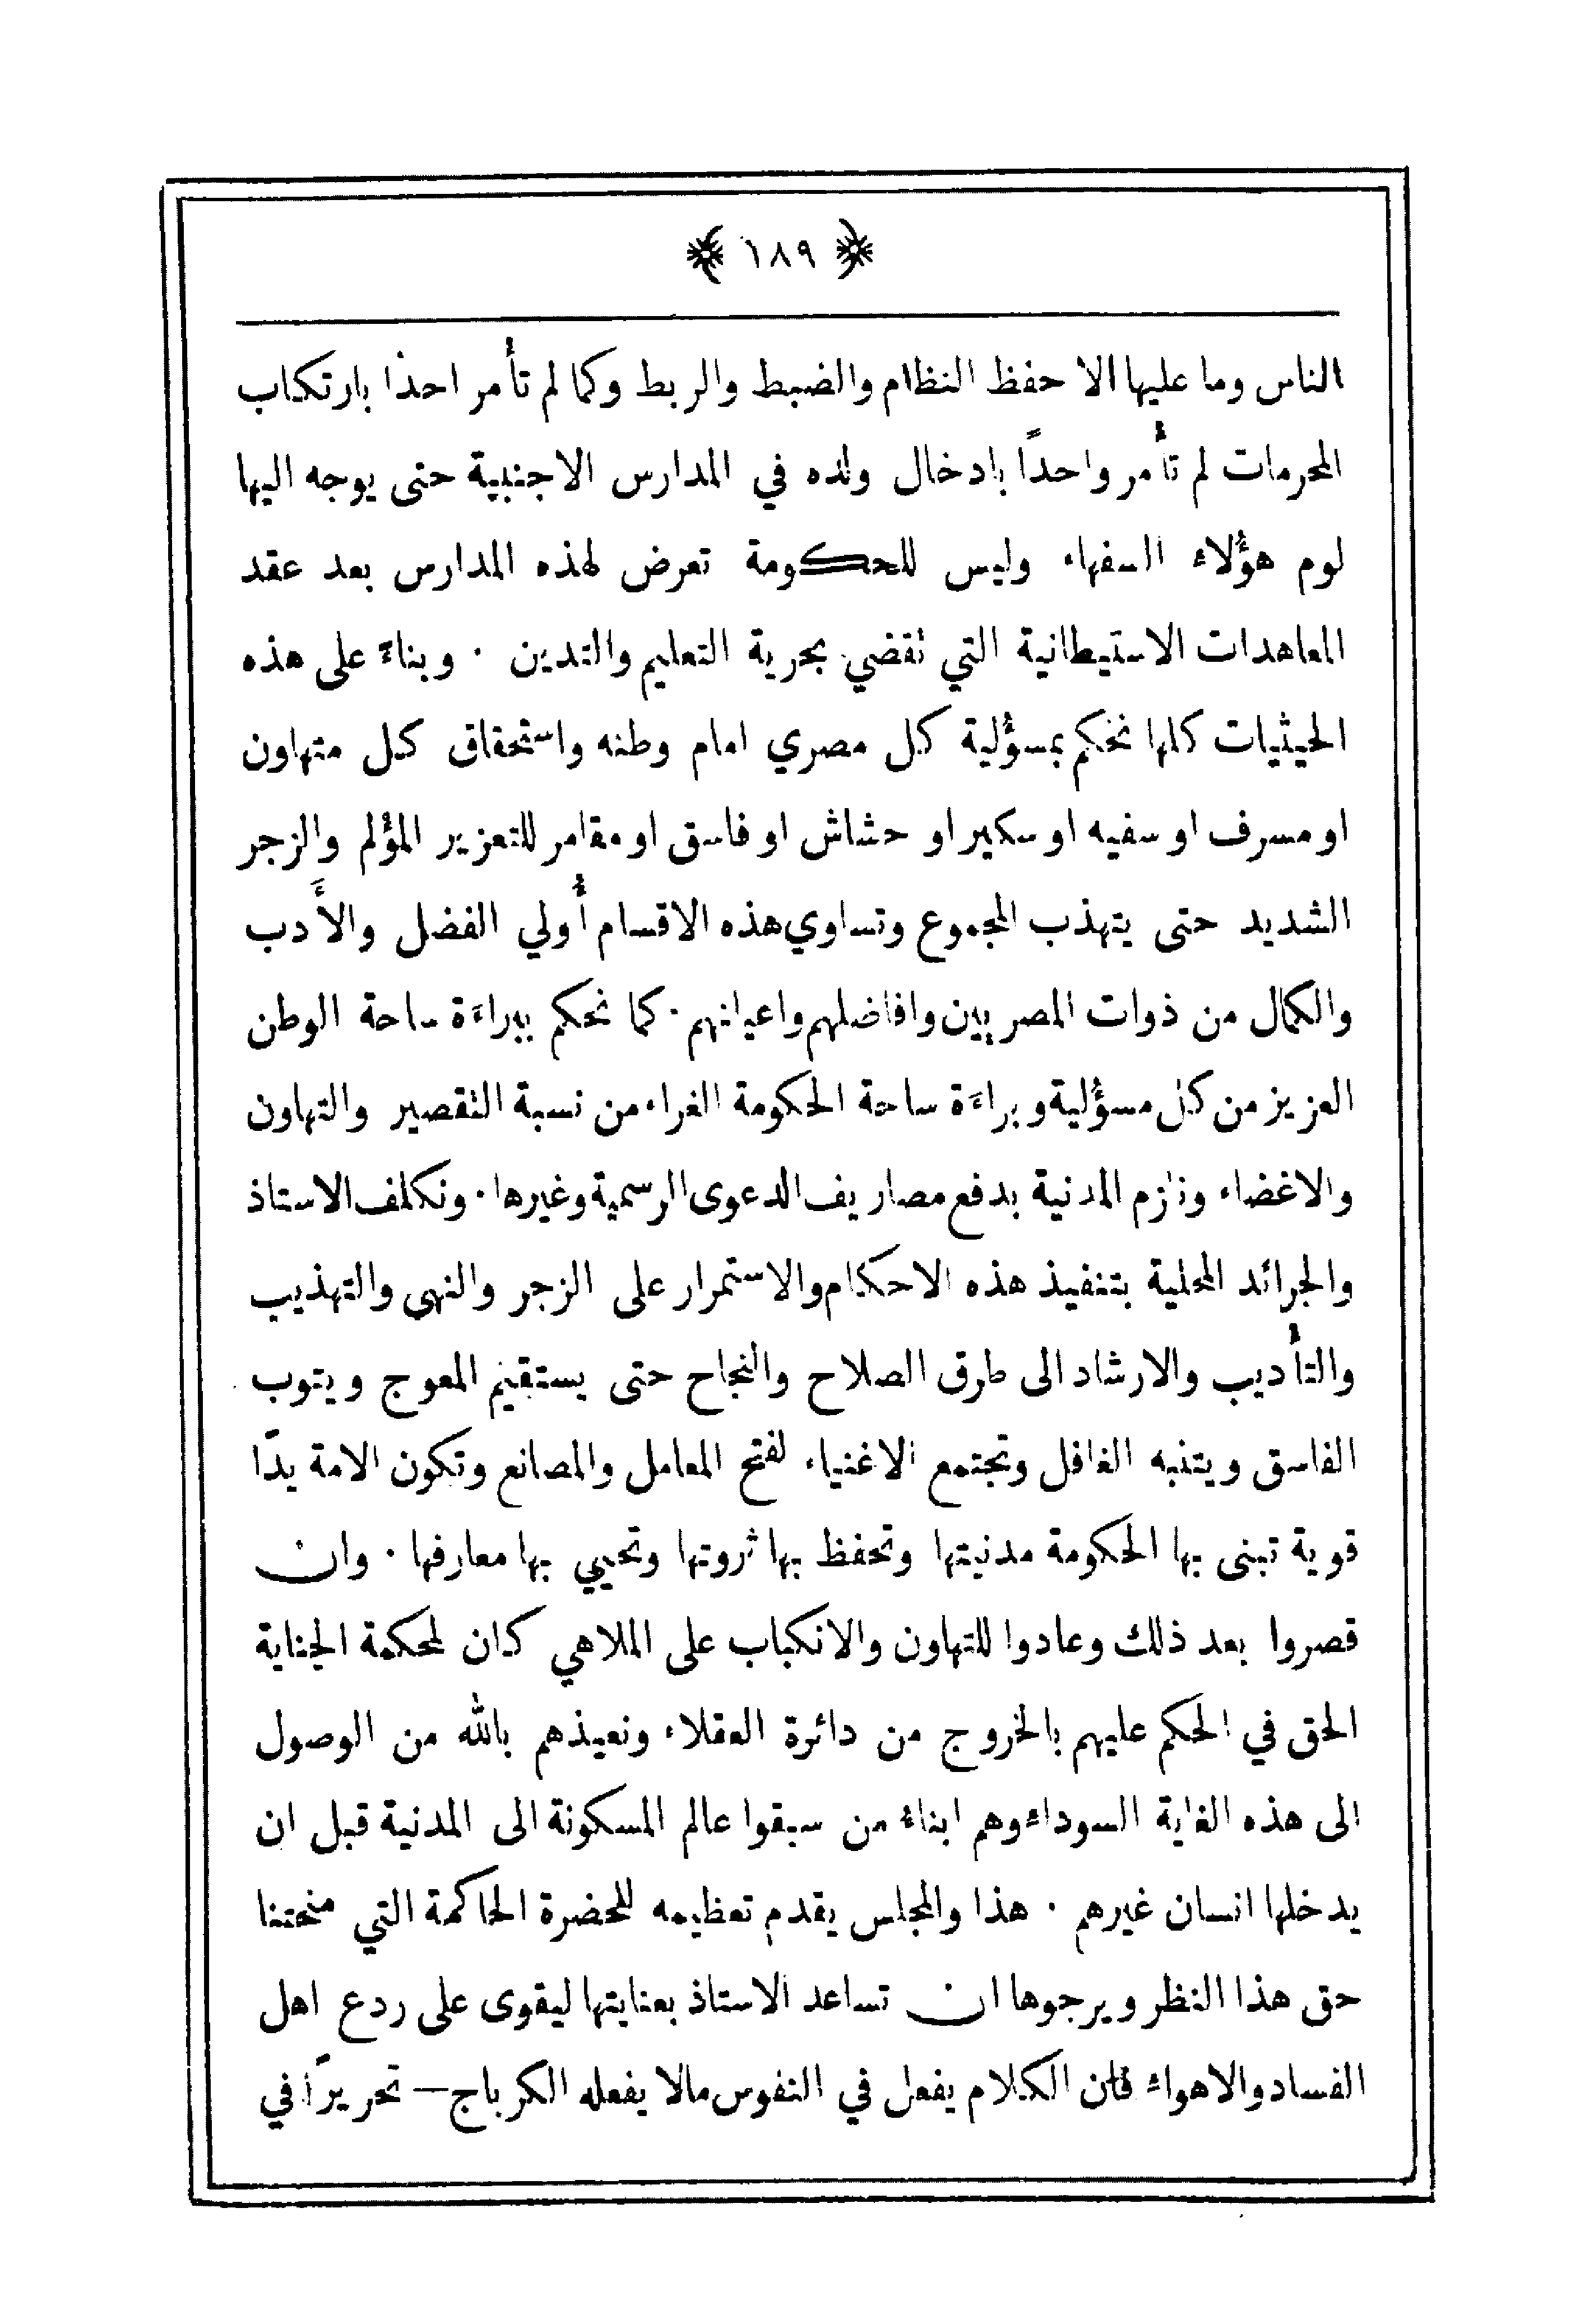 ﴿ ١٨٩ ﴾
الناس وما عليها الا حفظ النظام والضبط والربط وكما لم تأمر احدا بارتكاب
المحرمات لم تأمر واحدًا بادخال ولده في المدارس الاجنبية حتى يوجه اليها
لوم هؤلاء السفهاء وليس للحكومة تعرض لهذه المدارس بعد عقد
المعاهدات الاستيطانية التي نقضي بحرية التعليم والتدين . وبناءً على هذه
الحيثيات كلها نحكم بمسؤلية كل مصري امام وطنه واستحقاق كل متهاون
او مسرف او سفيه او سكير او حشاش او فاسق او مقامر للتعزير المؤلم والزجر
الشديد حتى يتهذب المجموع وتساوي هذه الاقسام أولي الفضل والأدب
والكمال من ذوات المصريين وافاضلهم واعيانهم . كما نحكم ببراءة ساحة الوطن
العزيز من كل مسؤلية وبراءة ساحة الحكومة الغراء من نسبة التقصير والتهاون
والاغضاء ونلزم المدنية بدفع مصاريف الدعوى الرسمية وغيرها . ونكلف الاستاذ
والجرائد المحلية بتنفيذ هذه الاحكام والاستمرار على الزجر والنهي والتهذيب
والتأديب والارشاد الى طرق الصلاح والنجاح حتى يستقيم المعوج ويتوب
الفاسق ويتنبه الغافل وتجتمع الاغنياء لفتح المعامل والمصانع وتكون الامة يدًا
قوية تبنى بها الحكومة مدنيتها وتحفظ بها ثروتها وتحيي بها معارفها . وان
قصروا بعد ذلك وعادوا للتهاون والانكباب على الملاهي كان لمحكمة الجناية
الحق في الحكم عليهم بالخروج من دائرة العقلاء ونعيذهم بالله من الوصول
الى هذه الغاية السوداء وهم ابناء من سبقوا عالم المسكونة الى المدنية قبل ان
يدخلها انسان غيرهم . هذا والمجلس يقدم تعظيمه للحضرة الحاكمة التي منحتنا
حق هذا النظر ويرجوها ان تساعد الاستاذ بعنايتها ليقوى على ردع اهل
الفساد والاهواء فان الكلام يفعل في النفوس مالا يفعله الكرباج — تحريرًا في